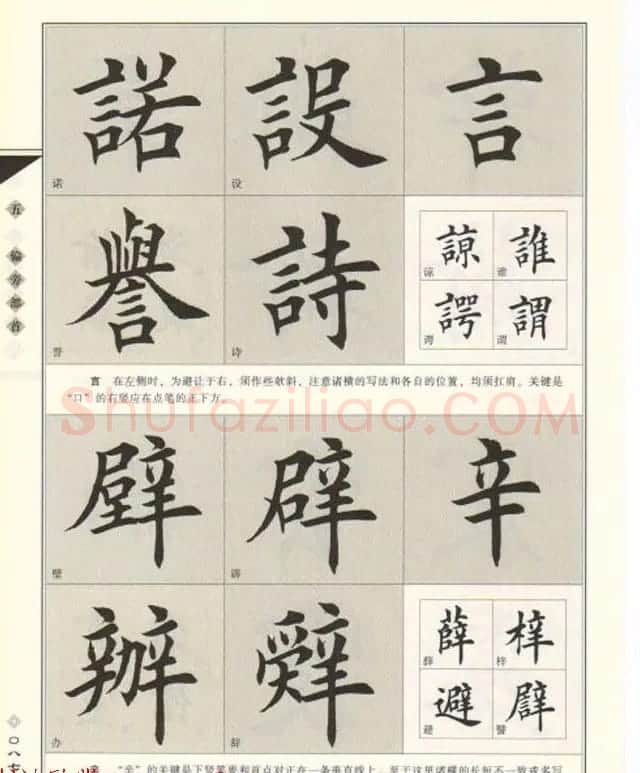 諾 設 言
诺 设
譽 詩
誉 诗
諒 誰
谅 谁
諤 謂
谔 谓
言 在左侧时，为避让于右，须作些欹斜，注意诸横的写法和各自的位置，均须扛肩。关键是
“口”的右竖应在点笔的正下方。
Shufaziliao.COM
壁 辟 辛
辟
辦 辭
办 辞
薛 梓
薛 梓
避
避
辛 “辛”的关键是下竖笔要和首点对正在一条垂直线上，至于这里诸横的长短不一致或多写
五 偏旁部首
〇八七